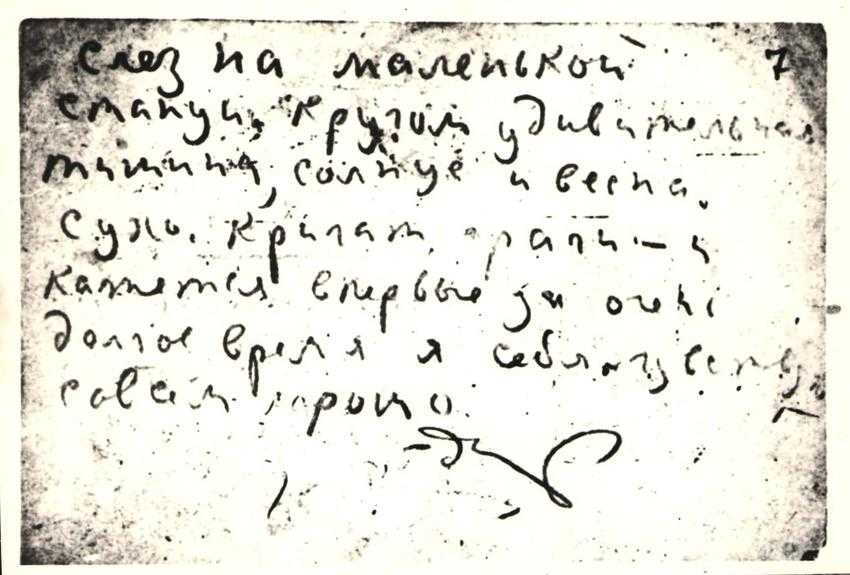 слез на маленькой 7
станции. Кругом удивительная
тишина, солнце и весна.
Сухо. Кричат грачи — и
кажется впервые за очень
долгое время я себя чувствую
совсем хорошо